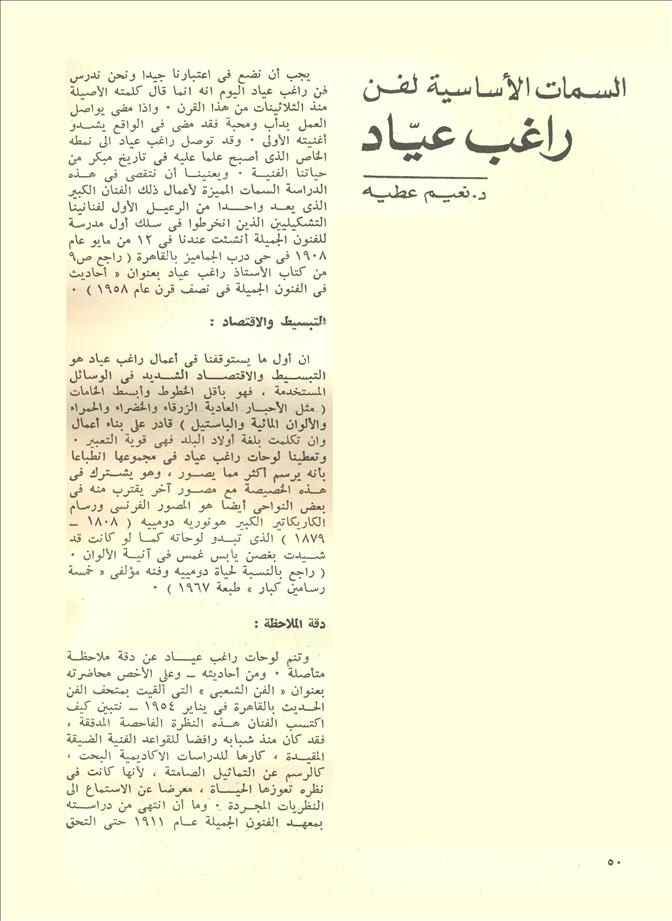 السمات الأساسية لفن
راغب عيّاد
د. نعيم عطيه
يجب أن نضع فى اعتبارنا جيدا ونحن ندرس
فن راغب عياد اليوم انه انما قال كلمته الأصيلة
منذ الثلاثينات من هذا القرن ٠ واذا مضى يواصل
العمل بدأب ومحبة فقد مضى فى الواقع يشدو
أغنيته الأولى ٠ وقد توصل راغب عياد الى نمطه
الخاص الذى أصبح علما عليه فى تاريخ مبكر من
حياتنا الفنية ٠ ويعنينا أن نتقصى فى هذه
الدراسة السمات المميزة لأعمال ذلك الفنان الكبير
الذى يعد واحدا من الرعيل الأول لفنانينا
التشكيليين الذين انخرطوا فى سلك أول مدرسة
للفنون الجميلة أنشئت عندنا فى ١٢ من مايو عام
١٩٠٨ فى حى درب الجماميز بالقاهرة ( راجع ص٩
من كتاب الأستاذ راغب عياد بعنوان « أحاديث
فى الفنون الجميلة فى نصف قرن عام ١٩٥٨ ) ٠
التبسيط والاقتصاد :
ان أول ما يستوقفنا فى أعمال راغب عياد هو
التبسيط والاقتصاد الشديد فى الوسائل
المستخدمة ، فهو بأقل الخطوط وأبسط الخامات
( مثل الأحبار العادية الزرقاء والخضراء والحمراء
والألوان المائية والباستيل ) قادر على بناء أعمال
وان تكلمت بلغة أولاد البلد فهى قوية التعبير ٠
وتعطينا لوحات راغب عياد فى مجموعها انطباعا
بأنه يرسم أكثر مما يصور ، وهو يشترك فى
هذه الخصيصة مع مصور آخر يقترب منه فى
بعض النواحى أيضا هو المصور الفرنسى ورسام
الكاريكاتير الكبير هونوريه دومييه ( ١٨٠٨ ــ
١٨٧٩ ) الذى تبدو لوحاته كما لو كانت قد
شيدت بغصن يابس غمس فى آنية الألوان ٠
( راجع بالنسبة لحياة دومييه وفنه مؤلفى « خمسة
رسامين كبار » طبعة ١٩٦٧ ) ٠
دقة الملاحظة :
وتنم لوحات راغب عياد عن دقة ملاحظة
متأصلة ٠ ومن أحاديثه ــ وعلى الأخص محاضرته
بعنوان « الفن الشعبى » التى ألقيت بمتحف الفن
الحديث بالقاهرة فى يناير ١٩٥٤ ــ نتبين كيف
اكتسب الفنان هذه النظرة الفاحصة المدققة ،
فقد كان منذ شبابه رافضا للقواعد الفنية الضيقة
المقيدة ، كارها للدراسات الاكاديمية البحت ،
كالرسم عن التماثيل الصامتة ، لأنها كانت فى
نظره تعوزها الحياة ، معرضا عن الاستماع الى
النظريات المجردة ٠ وما أن انتهى من دراسته
بمعهد الفنون الجميلة عام ١٩١١ حتى التحق
٥٠